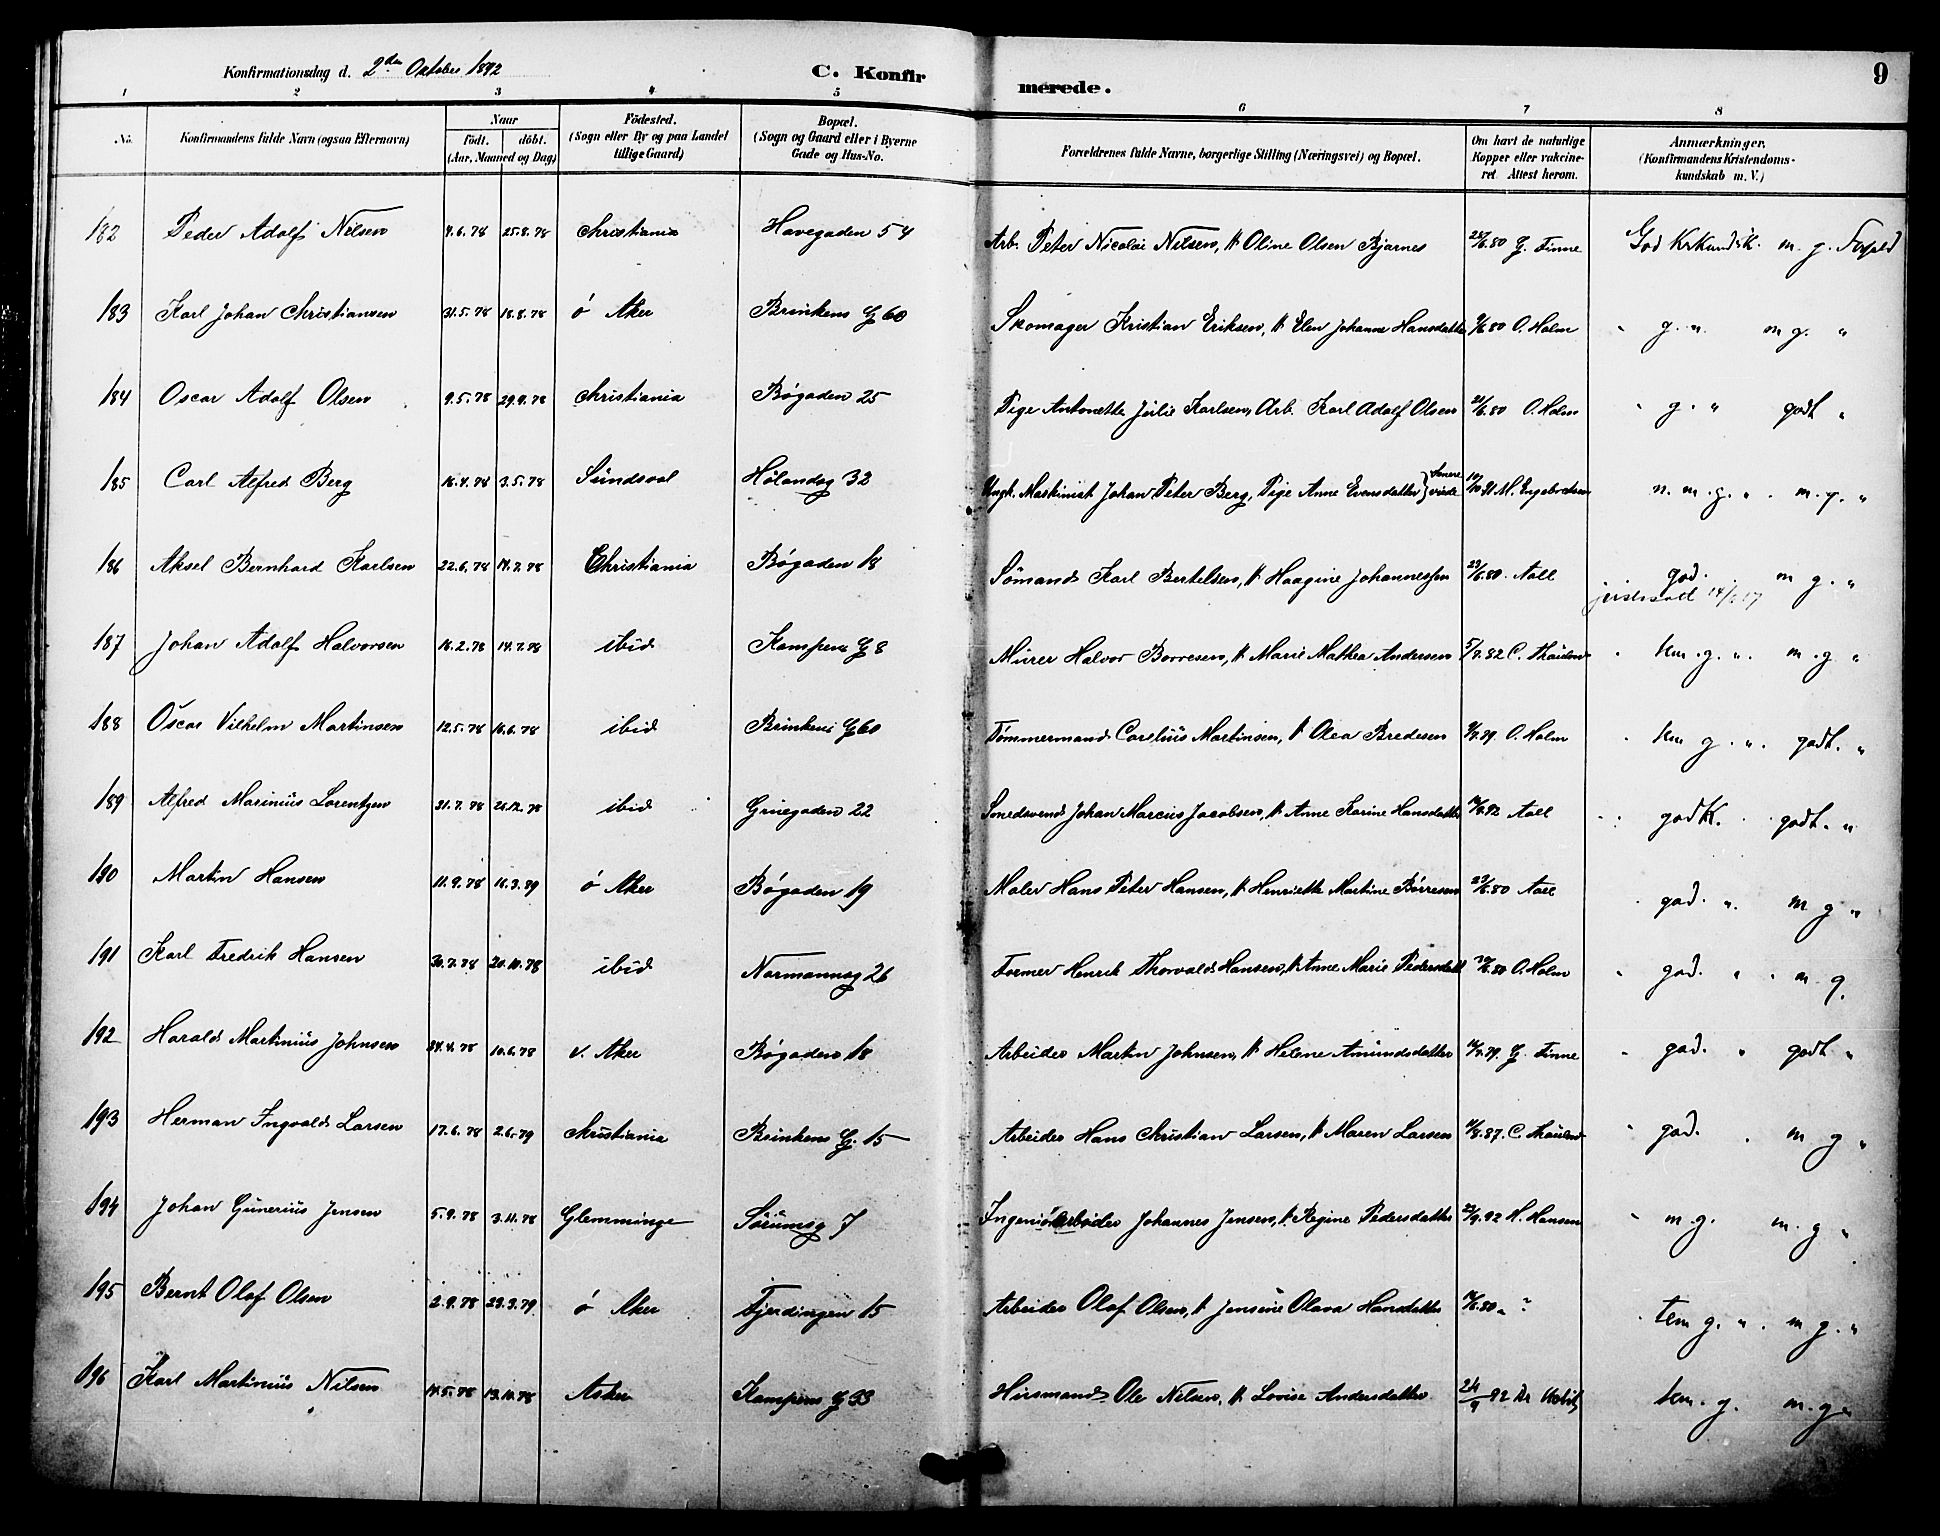 Konfirmationsdag d. 2den Oktober 1892 C. Konfirmerede. 9
1 2 3 4 5 6 7 8
No. Konfirmandens fulde Navn (ogsaa Efternavn) Naar födt. döbt. (Aar, Maaned og Dag) Födested. (Sogn eller By og paa Landet tillige Gaard) Bopæl. (Sogn og Gaard eller i Byerne Gade og Hus-No. Forældrenes fulde Navne, borgerlige Stilling (Næringsvei) og Bopæl. Om havt de naturlige Kopper eller vakcineret. Attest herom. Anmærkninger. (Konfirmandens Kristendomskundskab m. V.)
182 Peder Adolf Nilsen 7.6.78 25.8.78 Christiania Havegaden 54 Arb. Peter Nicolai Nilsen, h Oline Olsen Bjarnes 25/6.80 G. Finne God Krkundsk. m. g. Forhold
183 Karl Johan Christiansen 31.5.78 18.8.78 ó Aker Brinkens G 60 Skomager Kristian Eriksen, h Elen Johanne Hansdatter 9/6.80 O. Holm " g. " m g. "
184 Oscar Adolf Olsen 9.5.78 29.9.78 Christiania Bøgaden 25 Pige Antonette Julie Karlsen, Arb. Karl Adolf Olsen 21/6.80 O. Holm " g. " godt "
185 Carl Alfred Berg 16.4.78 3.5.78 Sundsval Hølandsg 32 Ungk. Maskinist Johan Peter Berg, Pige Anne Evensdatter } senere viede M. Engebretsen n. m. g. " . m. g. "
186 Aksel Bernhard Karlsen 22.6.78 14.7.78 Christiania Bøgaden 18 Sømand Karl Bertelsen, h Haagine Johannessen 23/6.80. Aall god. m g. "
187 Johan Adolf Halvorsen 16.2.78 14.7.78 ibid Kampens G 8 Murer Halvor Borresen, h Marie Mathea Andersen 5/7.82 C. Thaulow " km. g. ". m. g "
188 Oscar Vilhelm Martinsen 12.5.78 16.6.78 ibid Brinkens G 60 Tømmermand Carelius Martinsen, h Olea Bredesen O. Holm " km g. ". godt. "
189 Alfred Marinius Lorentzen 31.7.78 26.12.78 ibid Gruegaden 22 Smedsvend Johan Marcus Jacobsen, h Anne Karine Hansdatter Aall godt. godt. "
190 Martin Hansen 11.9.78 16.3.79 ó Aker Bøgaden 19 Maler Hans Peter Hansen, h Henriette Martine Børresen 23/6.80 Aall god. ". m g "
191 Karl Fredrik Hansen 30.7.78 20.10.78 ibid Normannsg 26 Former Henrik Thorvald Hansen, h Anne Marie Pedersdatt O. Holm " god. " m. g.
192 Harald Martinius Johnsen 24.4.78 10.6.78 v. Aker Bøgaden 18 Arbeider Martin Johnsen, h Helene Amundsdatter G. Finne " god. " godt "
193 Herman Ingvald Larsen 17.6.78 2.6.79 Christiania Brinkens G. 15 Arbeider Hans Christian Larsen, h Maren Larsen C. Thaulow " god. m g "
194 Johan Gunerius Jensen 5.9.78 3.11.78 Glemminge Sørumsg 7 Ingeniörarbeider Johannes Jensen, h Regine Pedersdatter 22/9.92 H. Hansen " m. g. m. g "
195 Bernt Olaf Olsen 2.9.78 23.3.79 ó Aker Fjerdingen 15 Arbeider Olaf Olsen, h Jensine Olava Hansdatter " ? tem g. ". m g. "
196 Karl Martinius Nilsen 14.5.78 13.10.78 Asker Kampens G 33 Husmand Ole Nilsen, h Lovise Andersdatter 24/9 92 km. g. m. g.